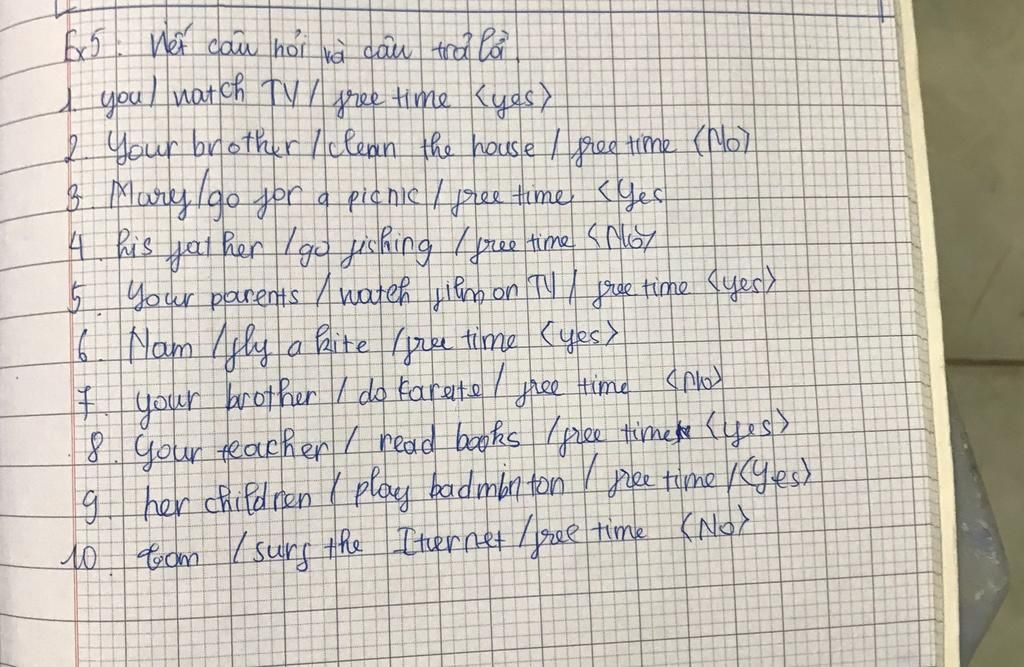 Ex5: Viết câu hỏi và câu trả lời.
1. you / watch TV / free time <yes>
2. Your brother / clean the house / free time <No>
3. Mary / go for a picnic / free time <Yes
4. his father / go fishing / free time <No>
5. Your parents / watch film on TV / free time <yes>
6. Nam / fly a kite / free time <yes>
7. your brother / do karate / free time <No>
8. Your teacher / read books / free time <yes>
9. her children / play badminton / free time / <Yes>
10. tom / surf the Iternet / free time <No>